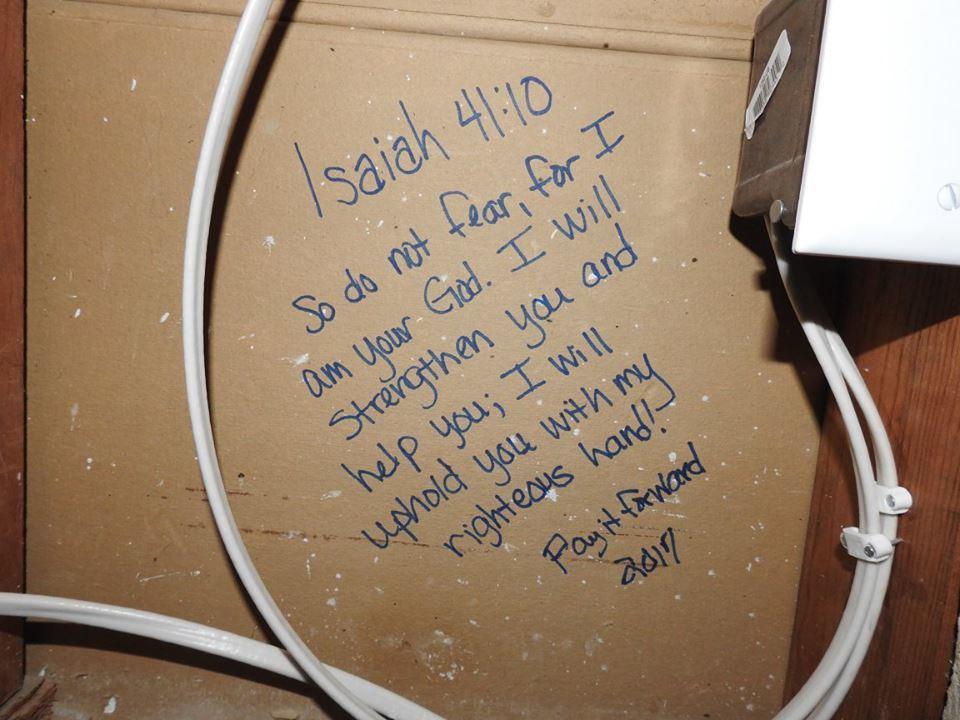 Isaiah 41:10
So do not fear, for I
am your God. I will
strengthen you and
help you; I will
uphold you with my
righteous hand!
Pay it forward
2017